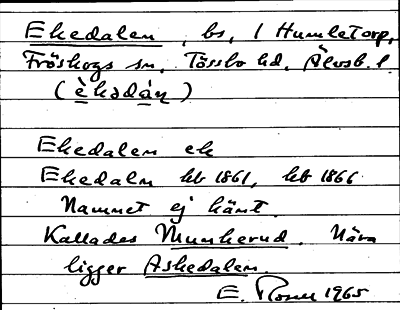 Ekedalen, bs, / Humletorp,
Fröskogs sn, Tössbo hd, Älvsb. l.
(èkədán)
Ekedalen ek
Ekedaln hb 1861, hb 1866
Namnet ej känt.
Kallades Munkerud. Nära
ligger Askedalen
E. Rosen 1965